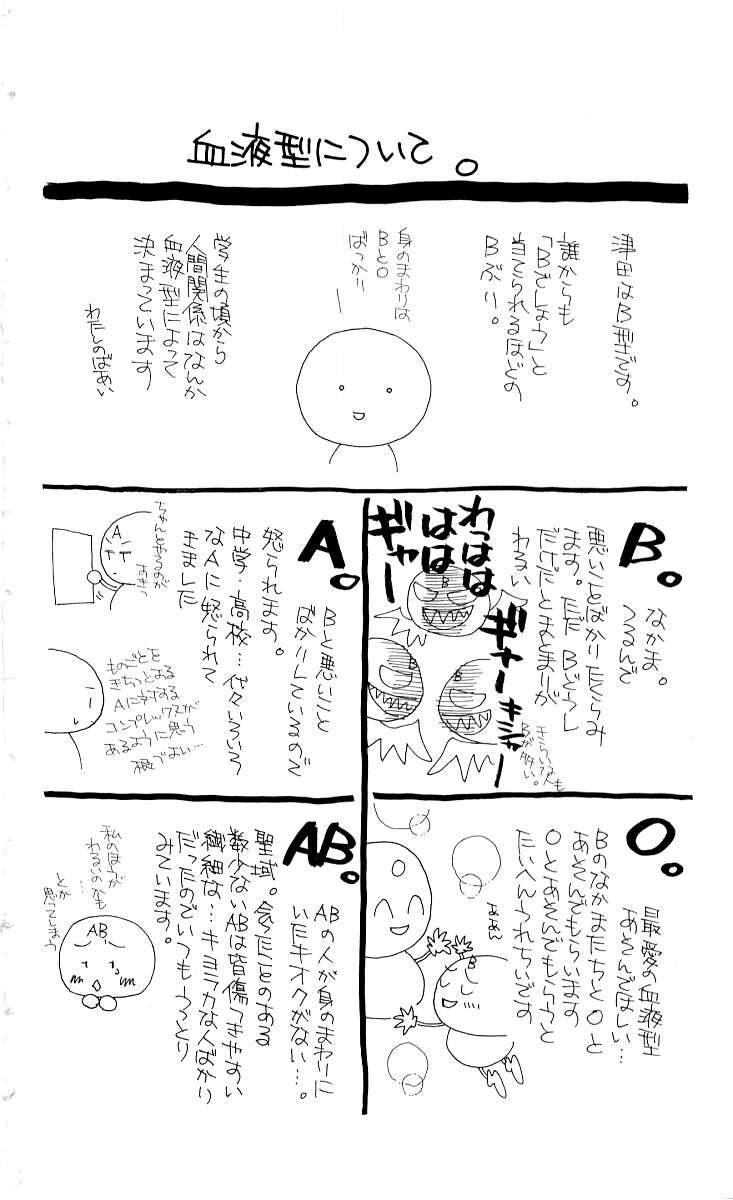 血液型について。
津田はB型です。
誰からも
「Bでしょう」と
当てられるほどの
Bぶり。
身のまわりは
BとO
ばっかり
学生の頃から
人間関係はなんか
血液型によって
決まっています
わたしのばあい
B。
なかま。
つるんで
悪いことばかりたくらみ
ます。ただBどうし
だけだとまとまりが
わるい
わっはは
はは
ギャー
ギャー
キシャー
きらいな人も
Bが多い。
B
B
B
A。
Bと悪いこと
ばかりしているので
怒られます。
中学・高校…代々いろいろ
なAに怒られて
きました
ちゃんとやるのが
あきっ
A
ものごとを
きちっとやる
Aに対する
コンプレックスが
あるように思う
根づよい…
O。
最愛の血液型
あそんでほしい…
Bのなかまたちと Oと
あそんでもらいます
OとあそんでもらうとS
たいへんうれちいです
ああん
O
B
AB。
ABの人が身のまわりに
いたキオクがない…。
聖域。会ったことのある
数少ないABは皆傷つきやすい
繊細な…キヨラカな人ばかり
だったのでいつもうっとり
みています。
私のほうが
わるいのかも
…
とか
思ってしまう
AB